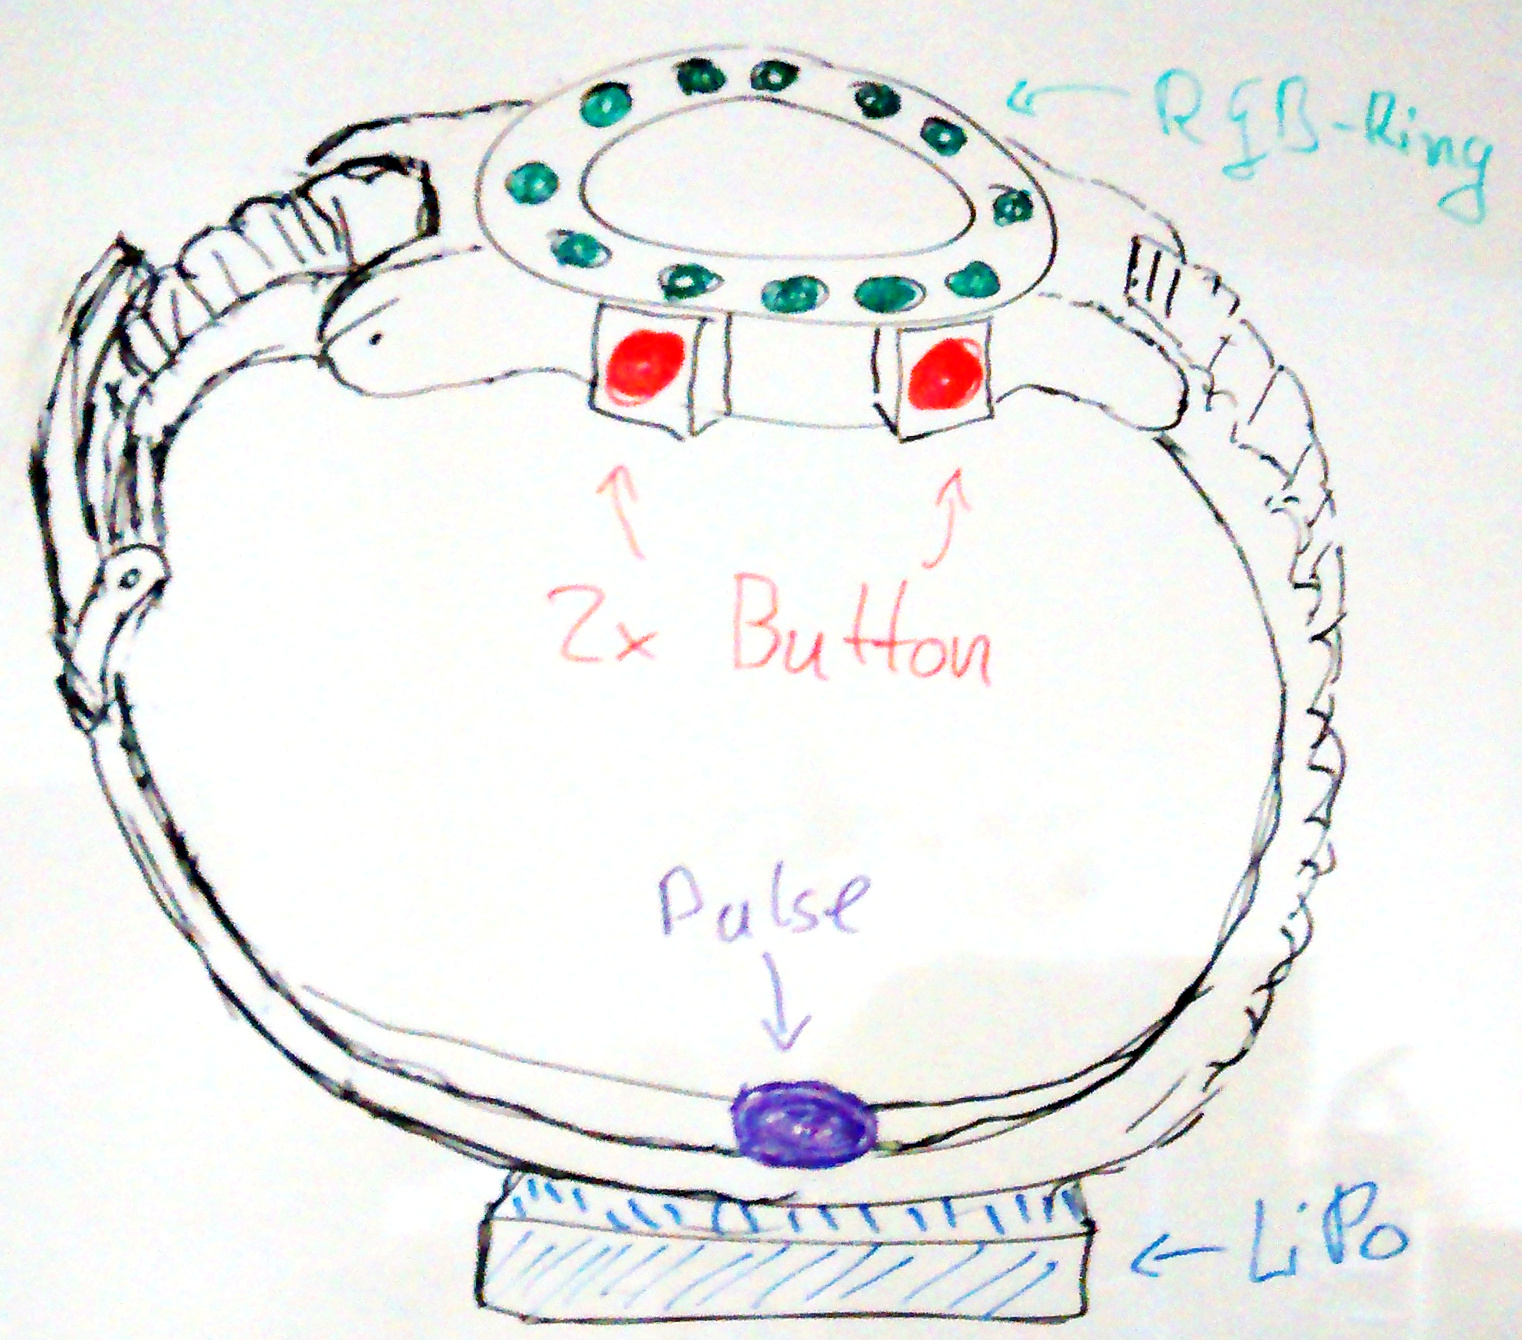 RGB-Ring
2x Button
Pulse
LiPo